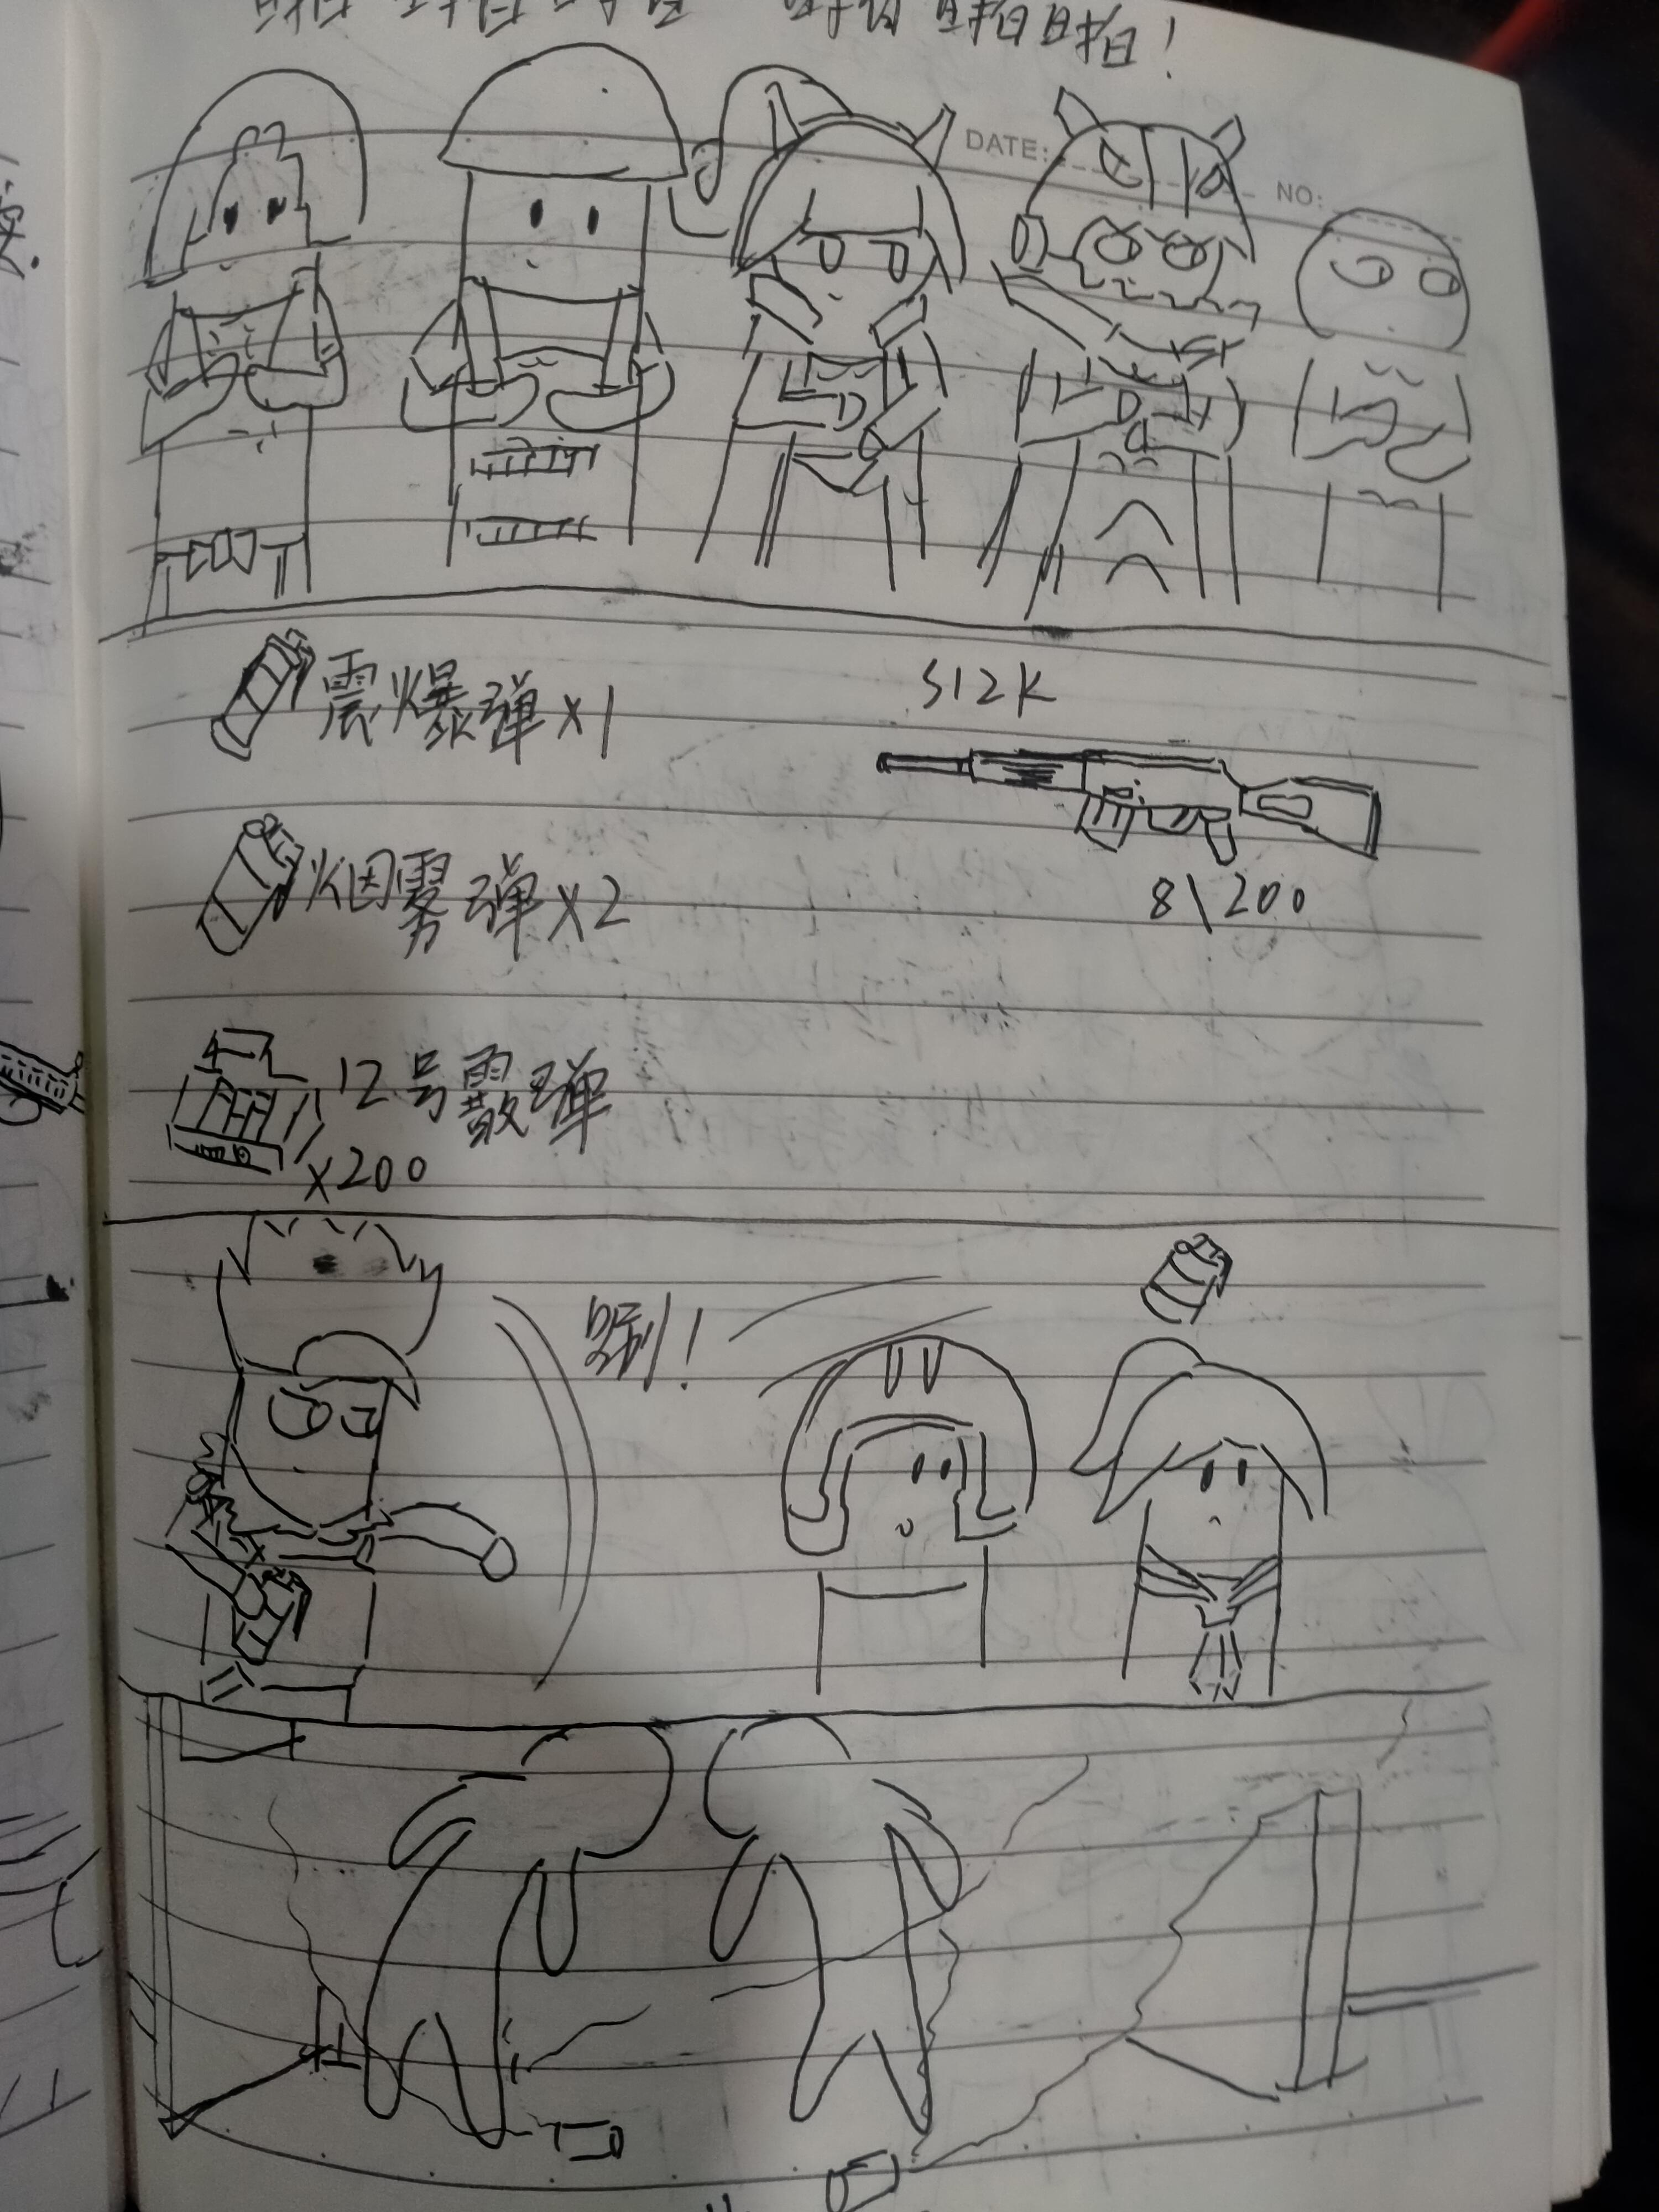 啪啪啪！
DATE:
NO:
震爆弹x1
S12K
烟雾弹x2
8\200
12号霰弹
x200
唰！